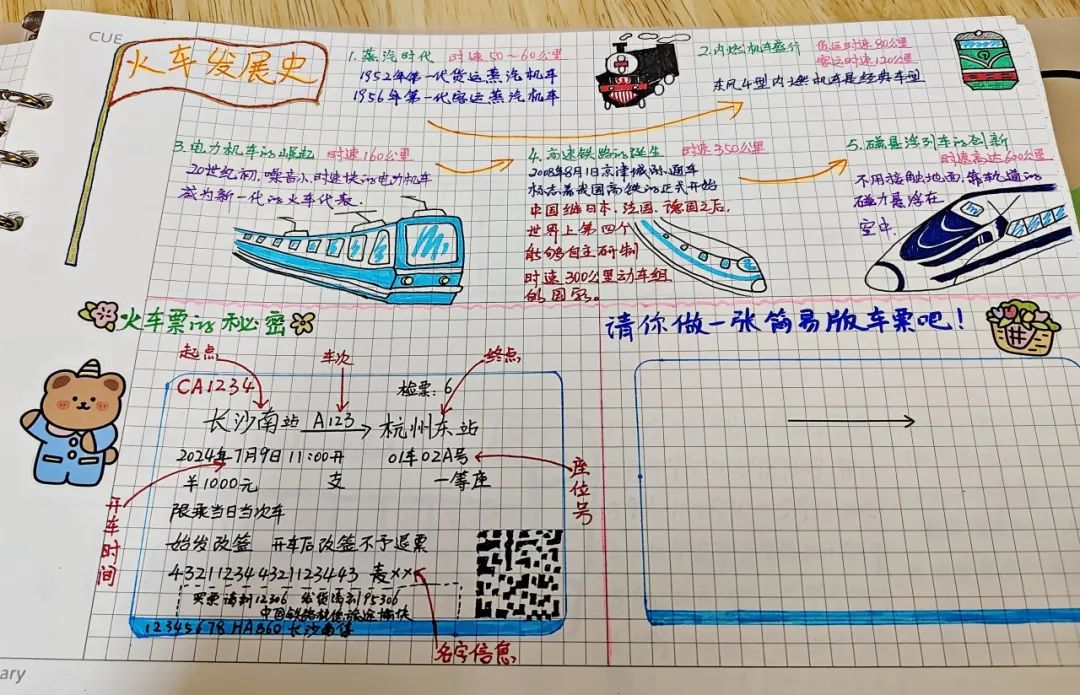 CUE
火车发展史
1.蒸汽时代 时速50~60公里
1952年第一代货运蒸汽机车
1956年第一代客运蒸汽机车
2.内燃机车盛行
货运时速80公里
客运时速120公里
东风4型内燃机车是经典车型
3.电力机车的崛起 时速160公里
20世纪初,噪音小、时速快的电力机车
成为新一代的火车代表.
4.高速铁路的诞生 时速350公里
2008年8月1日京津城际通车
标志着我国高铁的正式开始
中国继日本、法国、德国之后,
世界上第四个
能够自主研制
时速300公里动车组
的国家。
5.磁悬浮列车的创新
时速高达600公里
不用接触地面,靠轨道的
磁力悬浮在
空中.
火车票的秘密
起点
车次
终点
CA1234
检票:6
长沙南站 A123 杭州东站
2024年7月9日11:00开 01车02A号
¥1000元 支 一等座
限乘当日当次车
始发改签 开车后改签不予退票
432112344321123443 麦××
买票请到12306 发货请到95306
中国铁路祝您旅途愉快
12345678 HA860 长沙南售
座位号
开车时间
名字信息
请你做一张简易版车票吧!
ary